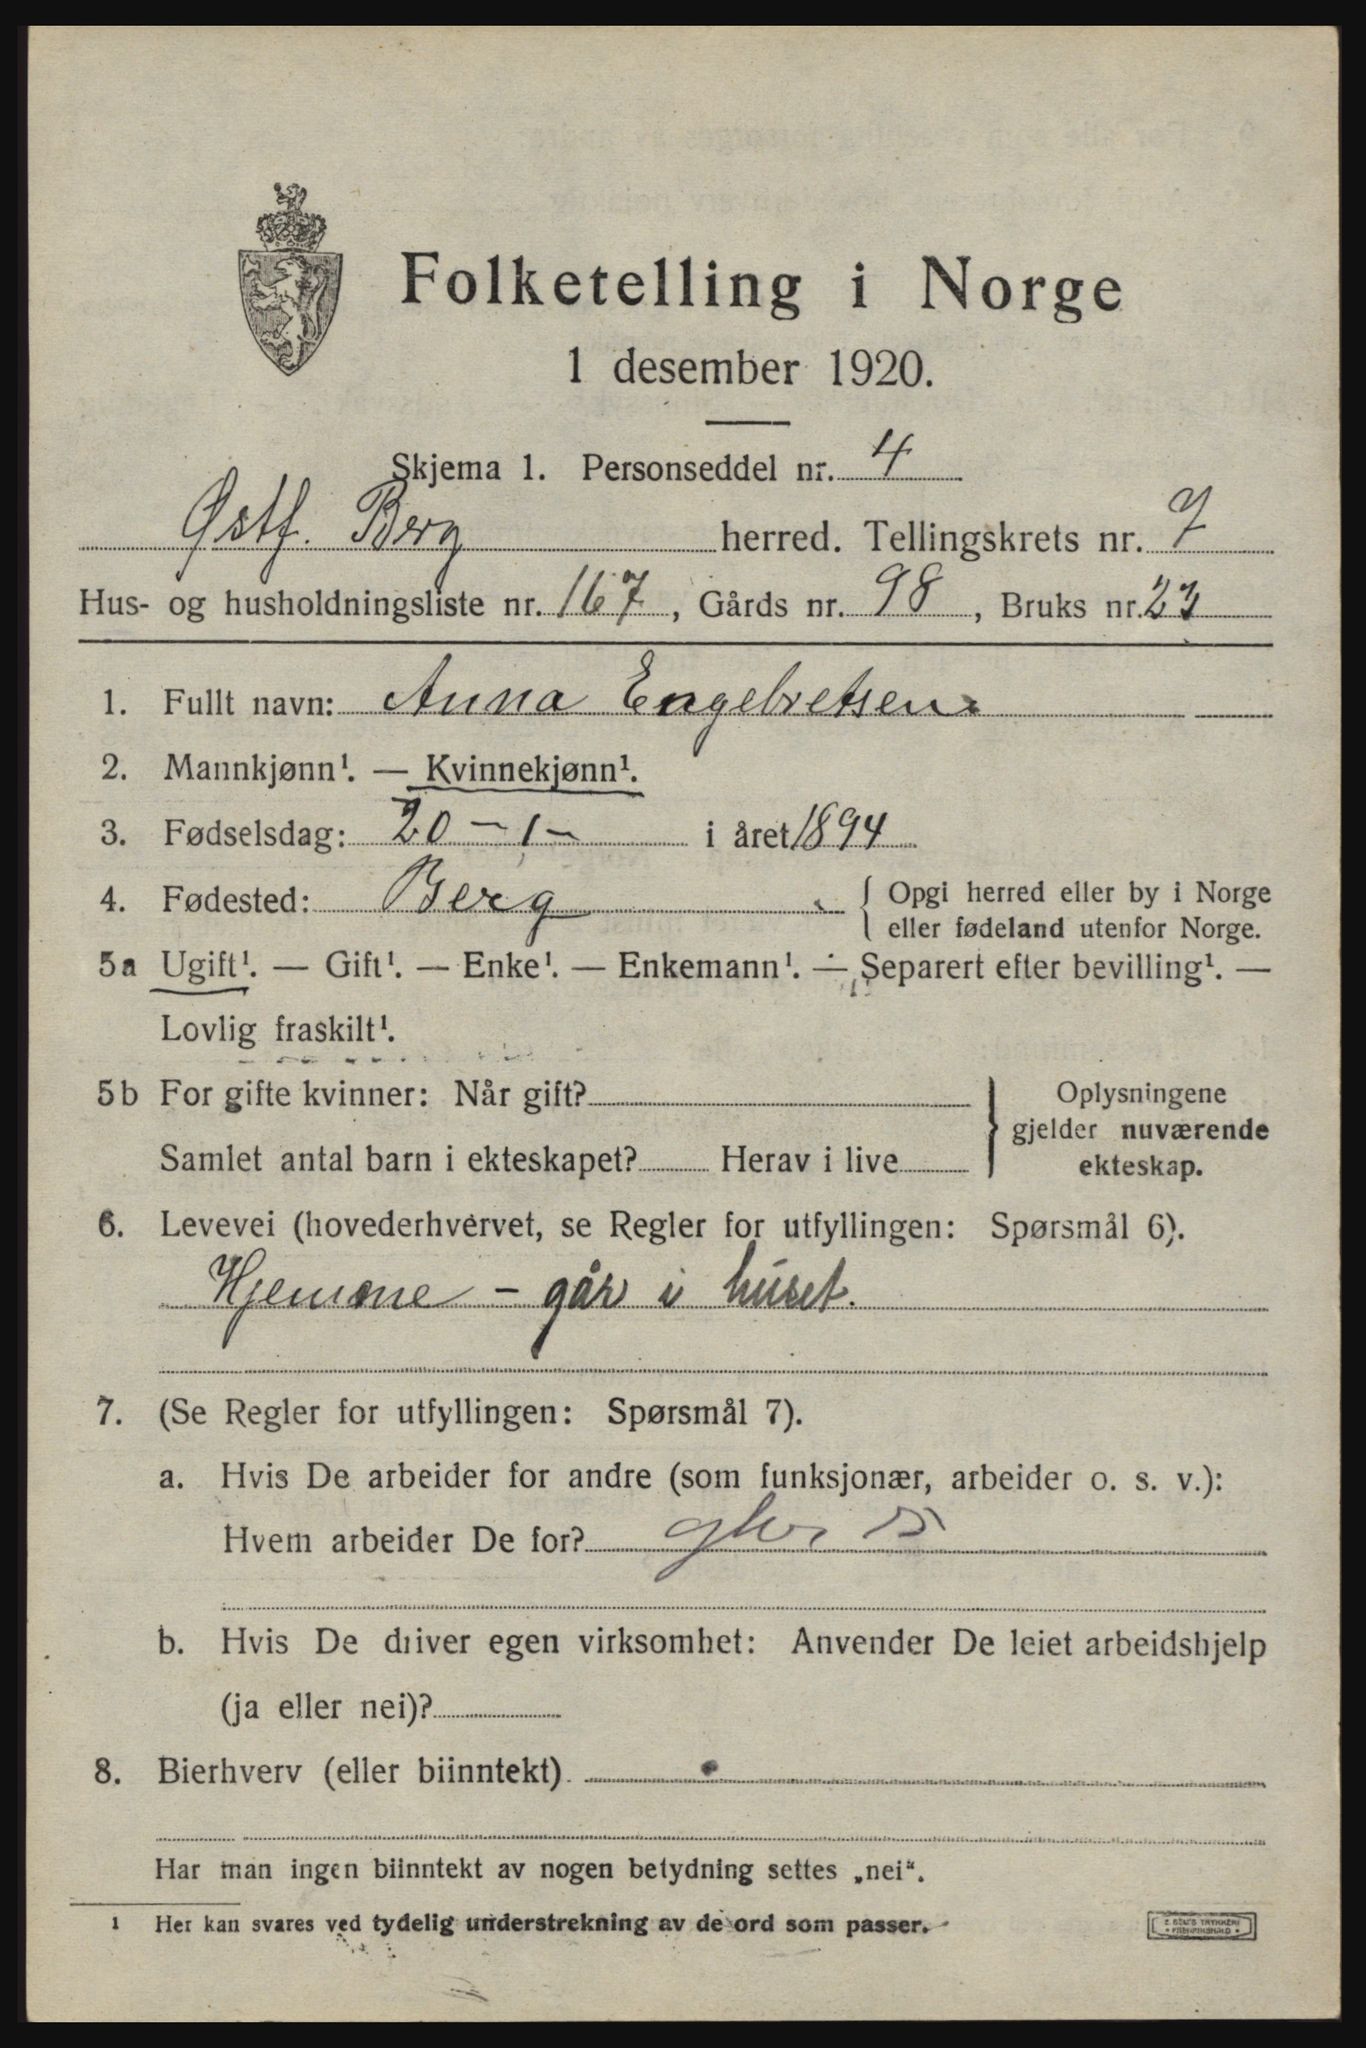 Folketelling i Norge
1 desember 1920.
Skjema 1. Personseddel nr. 4
Østf. Berg herred. Tellingskrets nr. 7
Hus- og husholdningsliste nr. 167, Gårds nr. 98, Bruks nr. 23
1. Fullt navn: Anna Engebretsen
2. Mannkjønn¹. — Kvinnekjønn¹.
3. Fødselsdag: 20 – 1 – i året 1894
4. Fødested: Berg { Opgi herred eller by i Norge
eller fødeland utenfor Norge.
5a Ugift¹. — Gift¹. — Enke¹. — Enkemann¹. — Separert efter bevilling¹. —
Lovlig fraskilt¹.
5b For gifte kvinner: Når gift?
Samlet antal barn i ekteskapet? Herav i live
} Oplysningene
gjelder nuværende
ekteskap.
6. Levevei (hovederhvervet, se Regler for utfyllingen: Spørsmål 6).
Hjemme – går i huset.
7. (Se Regler for utfyllingen: Spørsmål 7).
a. Hvis De arbeider for andre (som funksjonær, arbeider o. s. v.):
Hvem arbeider De for?
b. Hvis De driver egen virksomhet: Anvender De leiet arbeidshjelp
(ja eller nei)?
8. Bierhverv (eller biinntekt)
Har man ingen biinntekt av nogen betydning settes „nei“.
1 Her kan svares ved tydelig understrekning av de ord som passer.